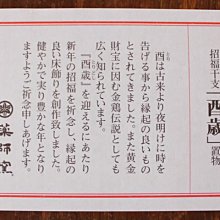 招福干支「酉歳」置物
酉は古来より夜明けに時を
告げる事から縁起の良いもの
とされてきました。また黄金
財宝に因む金鶏伝説としても
広く知られています。
『酉歳』を迎えるにあたり
新年の招福を祈念し、縁起の
良い床飾りを創作致しました。
健やかで実り豊かな年となり
ますようご祈念申しあげます。
薬師窯